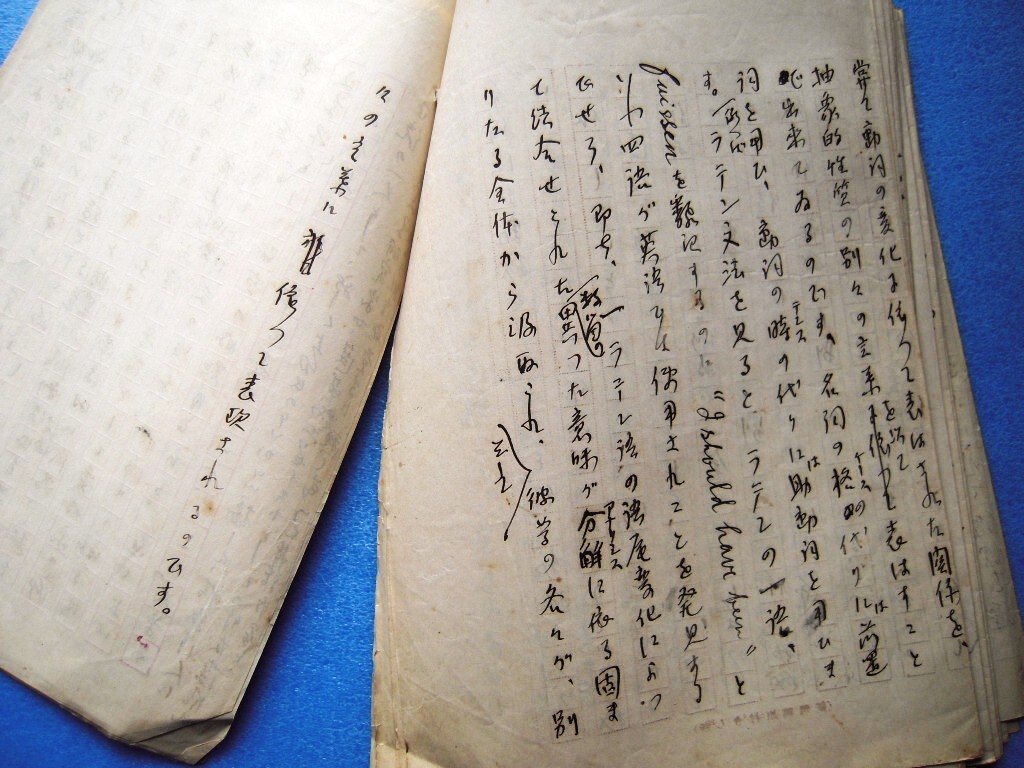 嘗て動詞の変化に依つて表はされた関係を、
抽象的性質の別々の言葉を以て表はすこと
が出来てゐるのです。名詞の格の代りには前置
詞を用ひ、動詞の時の代りには助動詞を用ひま
す。ラテン文法を見るとラテンの一語、
fuissem を飜訳するのに "I should have been" と
いふ四語が英語では使用されることを発見する
でせう、即ち、ラテン語の語尾変化によつ
て結合せられた異つた意味が分解に依る固ま
りたる全体から汲取られ、彼等の各々が、別
々の言葉に依つて表現されるのです。